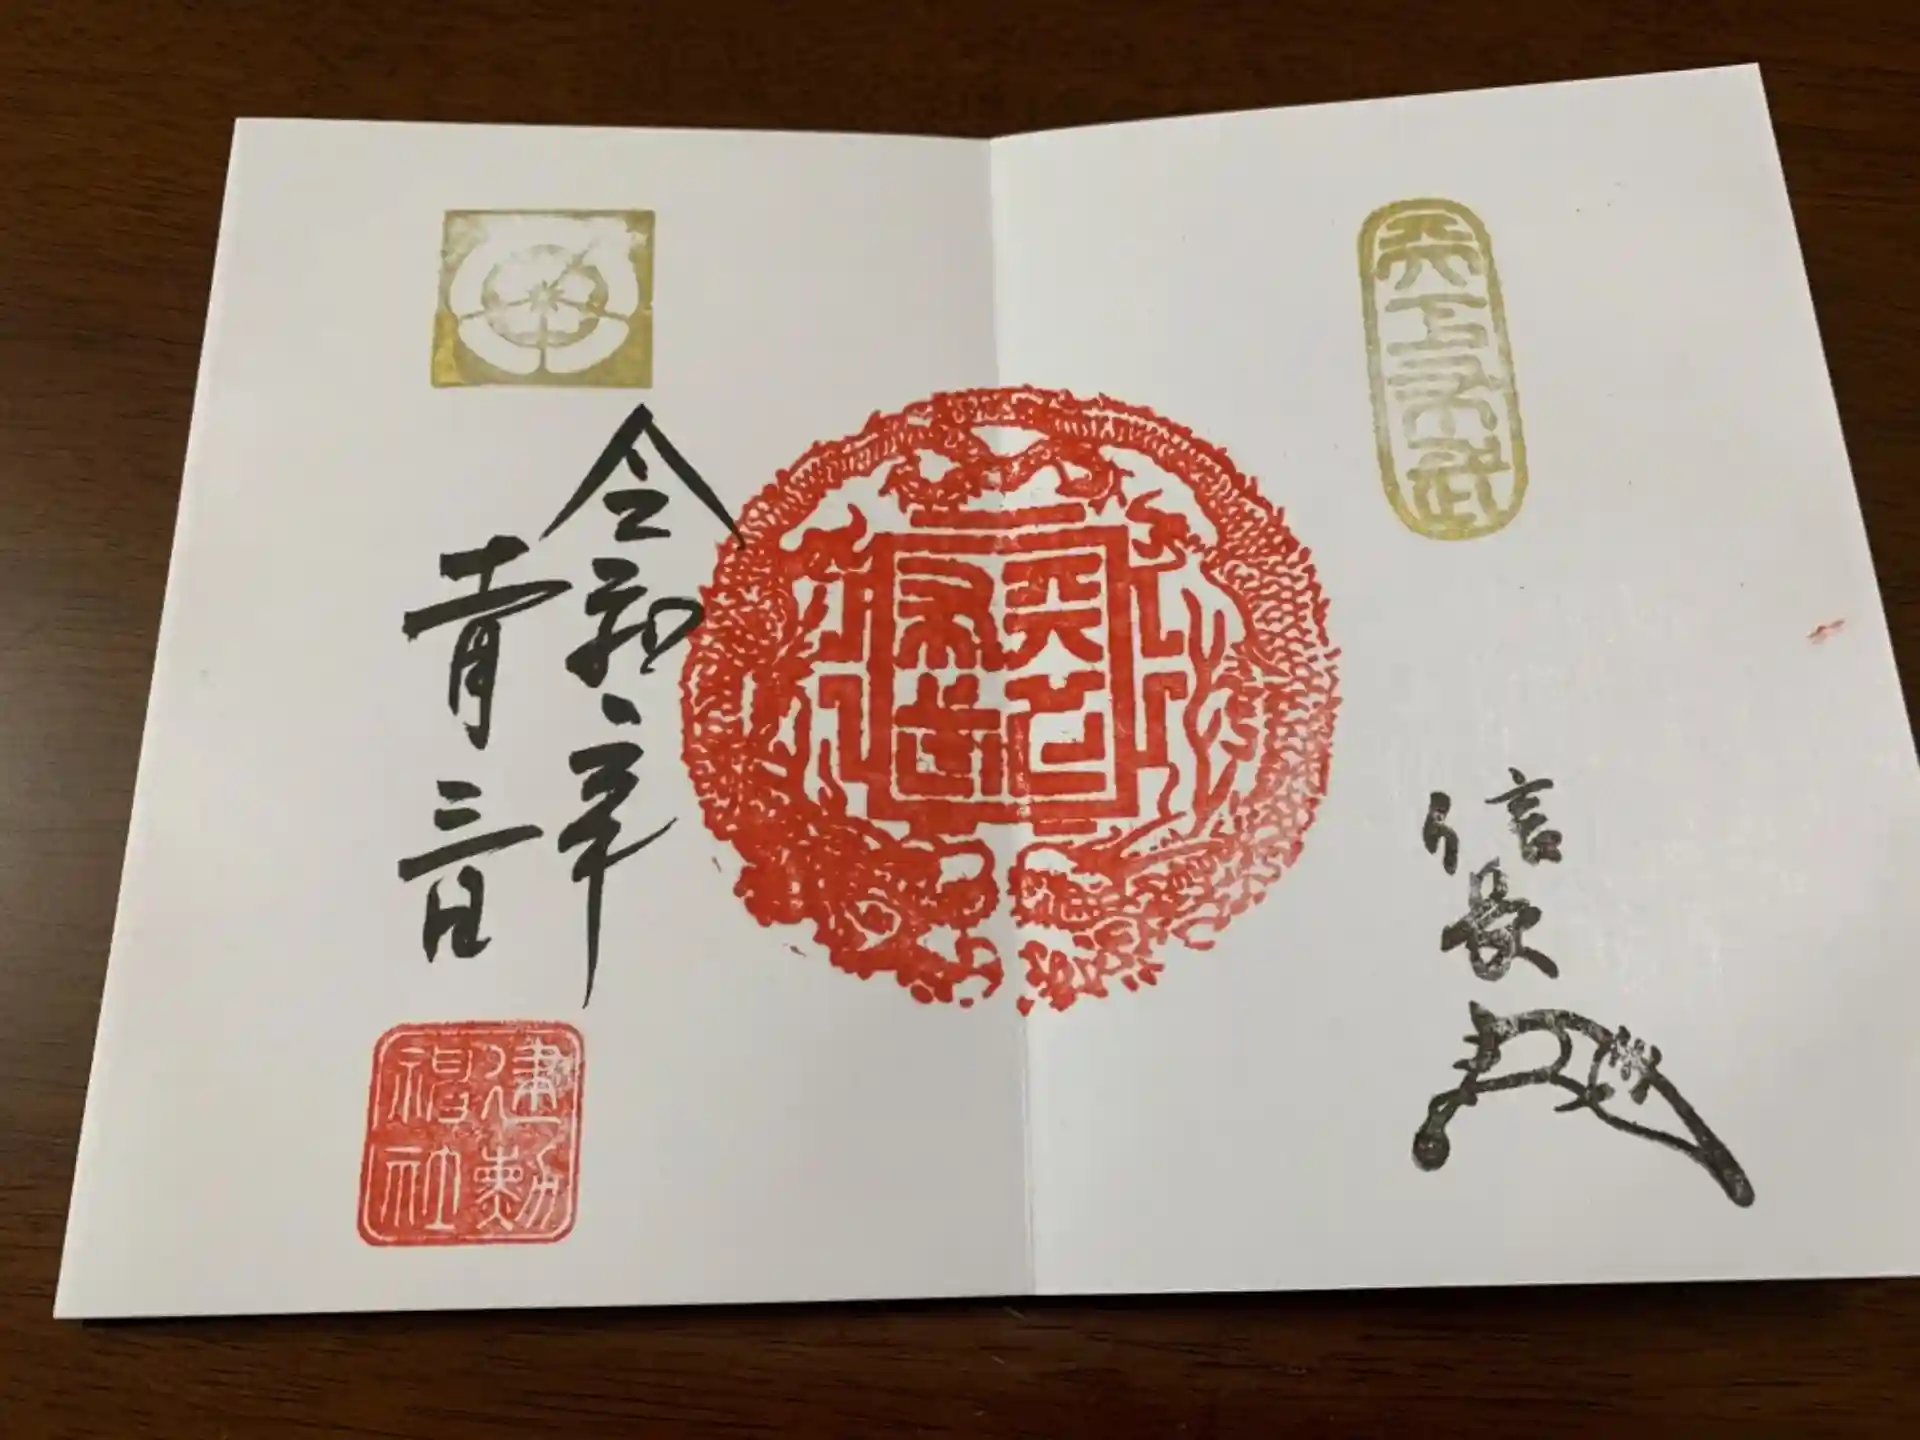 天下布武
信長
天下布武
令和二年
十一月三日
建勲神社